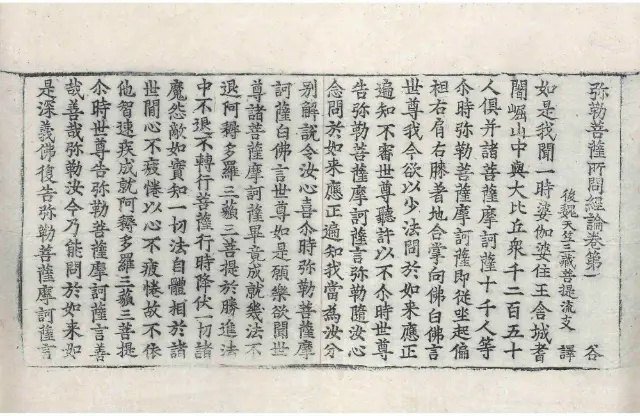 弥勒菩薩所問經論卷第一 谷
後魏天竺三藏菩提流支 譯
如是我聞一時婆伽婆住王舍城耆
闍崛山中與大比丘衆千二百五十
人俱并諸菩薩摩訶薩十千人等
尒時弥勒菩薩摩訶薩即從坐起偏
袒右肩右膝著地合掌向佛白佛言
世尊我今欲以少法問於如来應正
遍知不審世尊聽許以不尒時世尊
告弥勒菩薩摩訶薩言弥勒隨汝心
念問於如来應正遍知我當為汝分
别解說令汝心喜尒時弥勒菩薩摩
訶薩白佛言世尊如是願樂欲聞世
尊諸菩薩摩訶薩畢竟成就幾法不
退阿耨多羅三藐三菩提於勝進法
中不退不轉行菩薩行時降伏一切諸
魔怨敵如實知一切法自體相於諸
世間心不疲惓以心不疲惓故不依
他智速疾成就阿耨多羅三藐三菩提
尒時世尊告弥勒菩薩摩訶薩言善
哉善哉弥勒汝今乃能問於如来如
是深義佛復告弥勒菩薩摩訶薩言